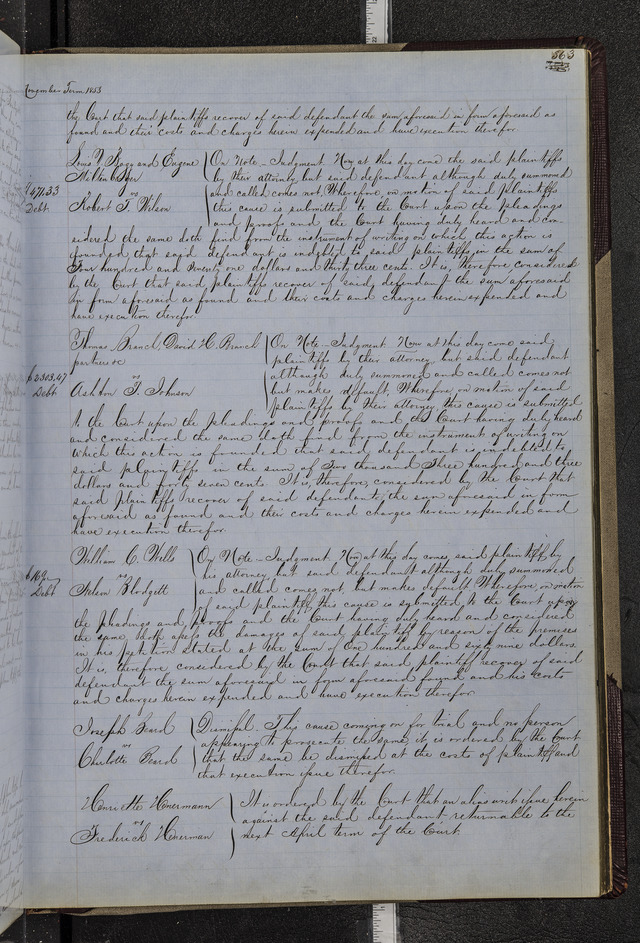 563
November Term 1853
the Court that said plaintiffs recover of said defendant the sum aforesaid in form aforesaid as
found and their costs and charges herein expended and have execution therefor.
Louis Y. Hogg and Eugene
Miltenberger
vs
Robert T. Wilson
$471.33
Debt
On Note - Judgment Now at this day come the said plaintiffs
by their attorney, but said defendant although duly summoned
and called comes not, Wherefore, on motion of said plaintiffs
this cause is submitted to the Court upon the pleadings
and proofs and the Court having duly heard and con-
sidered the same doth find from the instrument of writing on which this action is
founded that said defendant is indebted to said plaintiffs in the sum of
Four hundred and Seventy one dollars and thirty three cents. It is, therefore, considered
by the Court that said plaintiffs recover of said defendant the sum aforesaid
in form aforesaid as found and their costs and charges herein expended and
have execution therefor
Thomas Branch, David H. Branch
partners &c
vs
Ashdon T. Johnson
$2303.47
Debt
On Note - Judgment Now at this day come said
plaintiffs by their attorney, but said defendant
although duly summoned and called comes not
but makes default, Wherefore, on motion of said
plaintiffs by their attorney this cause is submitted
to the Court upon the pleadings and proofs and the Court having duly heard
and considered the same doth find from the instrument of writing on
which this action is founded that said defendant is indebted to
said plaintiffs in the sum of Two thousand Three hundred and three
dollars and forty seven cents. It is, therefore, considered by the Court that
said plaintiffs recover of said defendant, the sum aforesaid in form
aforesaid as found and their costs and charges herein expended and
have execution therefor.
William C. Wells
vs
Nelson Blodgett
$169
Debt
On Note - Judgment Now at this day comes said plaintiff, by
his attorney, but said defendant although duly summoned
and called comes not, but makes default Wherefore, on motion
of said plaintiff this cause is submitted to the Court upon
the pleadings and proofs and the Court having duly heard and considered
the same, doth assess the damages of said plaintiff by reason of the premises
in his petition stated at the sum of One hundred and sixty nine dollars.
It is, therefore considered by the Court that said plaintiff recover of said
defendant the sum aforesaid in form aforesaid found and his costs
and charges herein expended and have execution therefor
Joseph Beard
vs
Charlotte Beard
Dismissal - This cause coming on for trial and no person
appearing to prosecute the same it is ordered by the Court
that the same be dismissed at the costs of plaintiff and
that execution issue therefor.
Henriette Henermann
vs
Frederick Henerman
It is ordered by the Court that an alias writ issue herein
against the said defendant returnable to the
next April term of the Court.